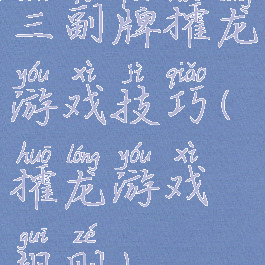 三副牌攉龙
yóu xì jì qiǎo
游戏技巧(
huō lóng yóu xì
攉龙游戏
guī zé
规则)